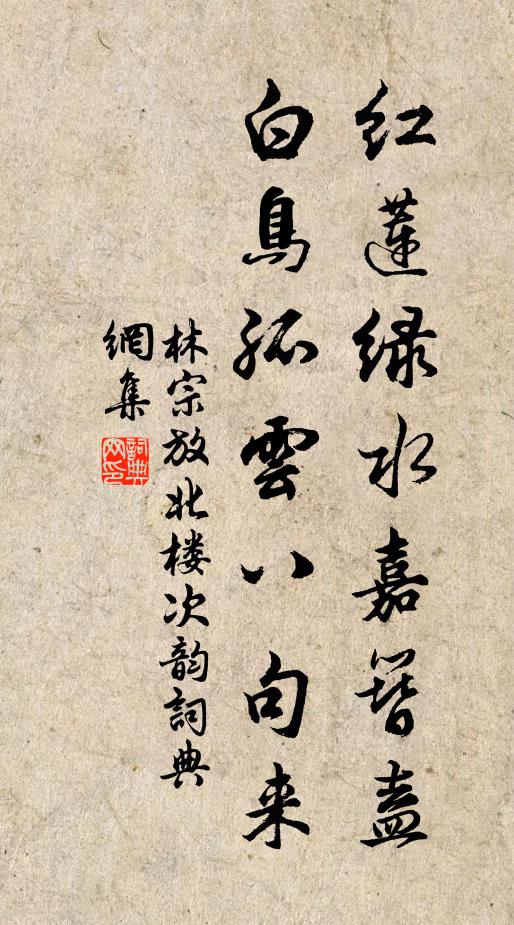 红莲绿水嘉簪盍
白鳥孤雲八句来
林宗放北楼次韵詞典
網集
詞典网印